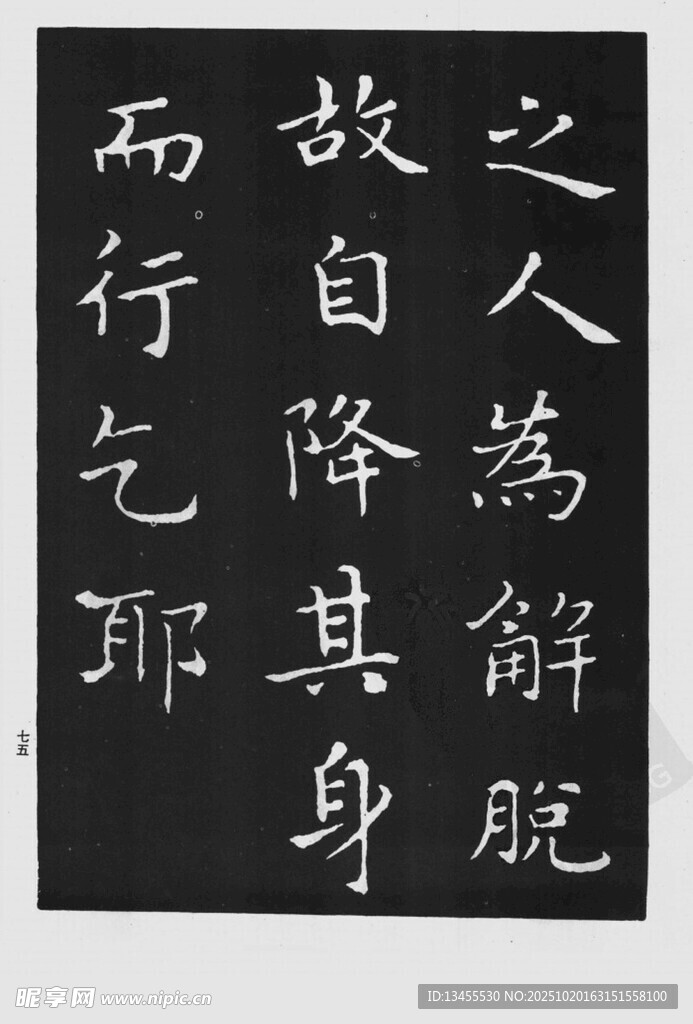 之人為解脫
故自降其身
而行乞耶
七五
昵享网 www.nipic.cn
ID:13455530 NO:20251020163151558100